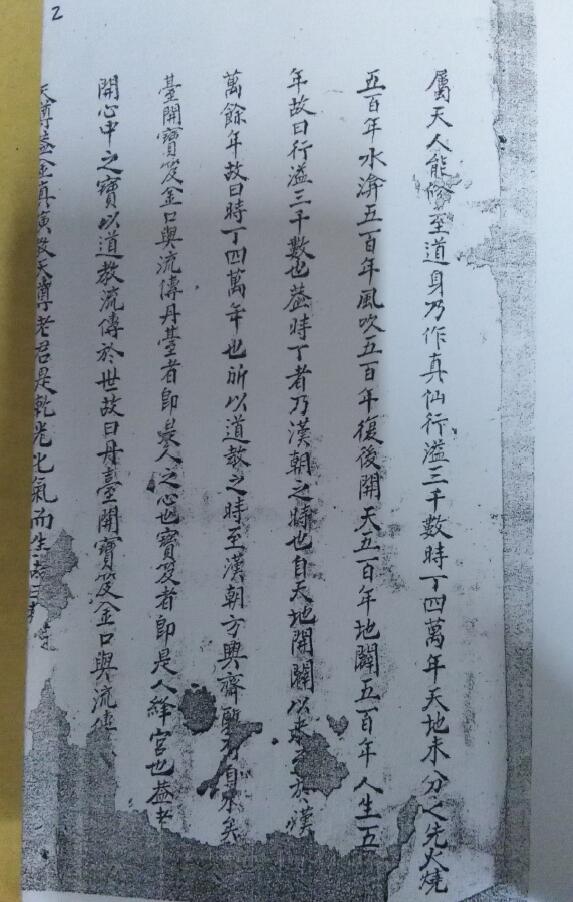 2
屬天人能修至道身乃作真仙行溢三千數時丁四萬年天地未分之先火燒
五百年水渰五百年風吹五百年復後開天五百年地闢五百年人生五
年故曰行溢三千數也蓋時丁者乃漢朝之時也自天地開闢以來至於漢
萬餘年故曰時丁四萬年也所以道教之時至漢朝方興齋
臺開寶笈金口與流傳丹臺者即是人之心也寶笈者即是人絳宮也蓋老
開心中之寶以道教流傳於世故曰丹臺開寶笈金口與流傳
天尊 金真演教天尊老君是乾光化氣而生